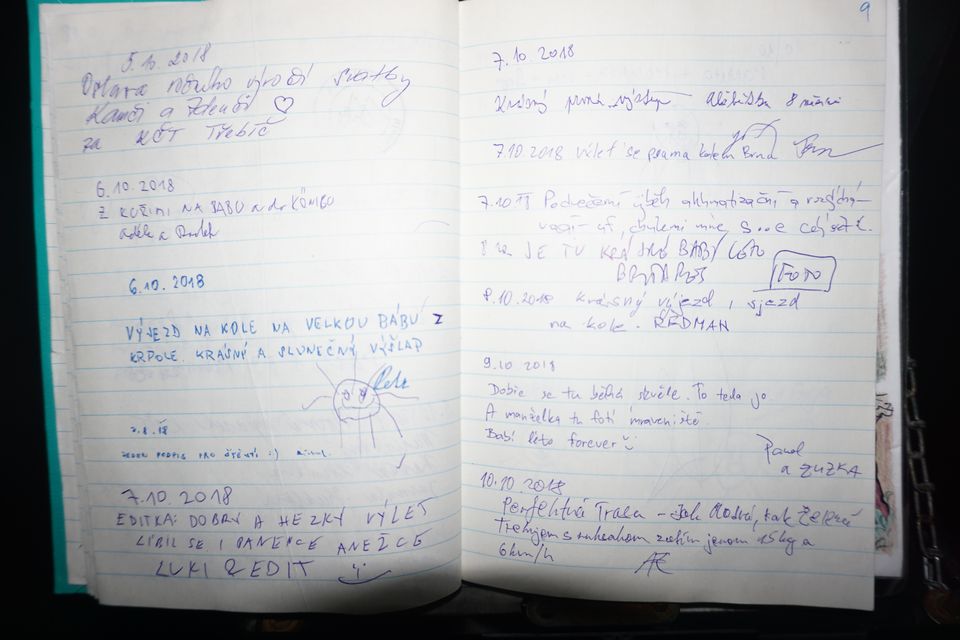 5.10.2018
Oslava ročního výročí svatby
Kamči a Zdendi ♡
za KČT Třebíč
6.10.2018
Z KUŘIMI NA BABU a do KÖNIGU
Adéla a Radek
6.10.2018
VÝJEZD NA KOLE NA VELKOU BABU Z
KRPOLE. KRÁSNÝ A SLUNEČNÝ VÝŠLAP
Petr
JEDEN PODPIS PRO ŠTĚSTÍ :)
7.10.2018
EDITKA: DOBRÝ A HEZKÝ VÝLET
LÍBIL SE I PANENCE ANEŽCE
LUKI & EDIT
9
7.10.2018
Krásný první výstup 8 měsíců
7.10.2018 výlet se psama kolem Brna
7.10.18 Podvečerní výběh aklimatizační a
JE TU KRÁSNÉ BABÍ LÉTO
FOTO
8.10.2018 krásný výjezd, sjezd
na kole. REDMAN
9.10.2018
Dobře se tu běhá skvěle. To teda jo
A manželka tu fotí mraveniště.
Babí léto forever
Pavel
a ZUZKA
10.10.2018
Perfektní Trasa – jak Modrá, tak Zelená
Trénujem s ruksakom zatím jenom 15kg a
6km/h